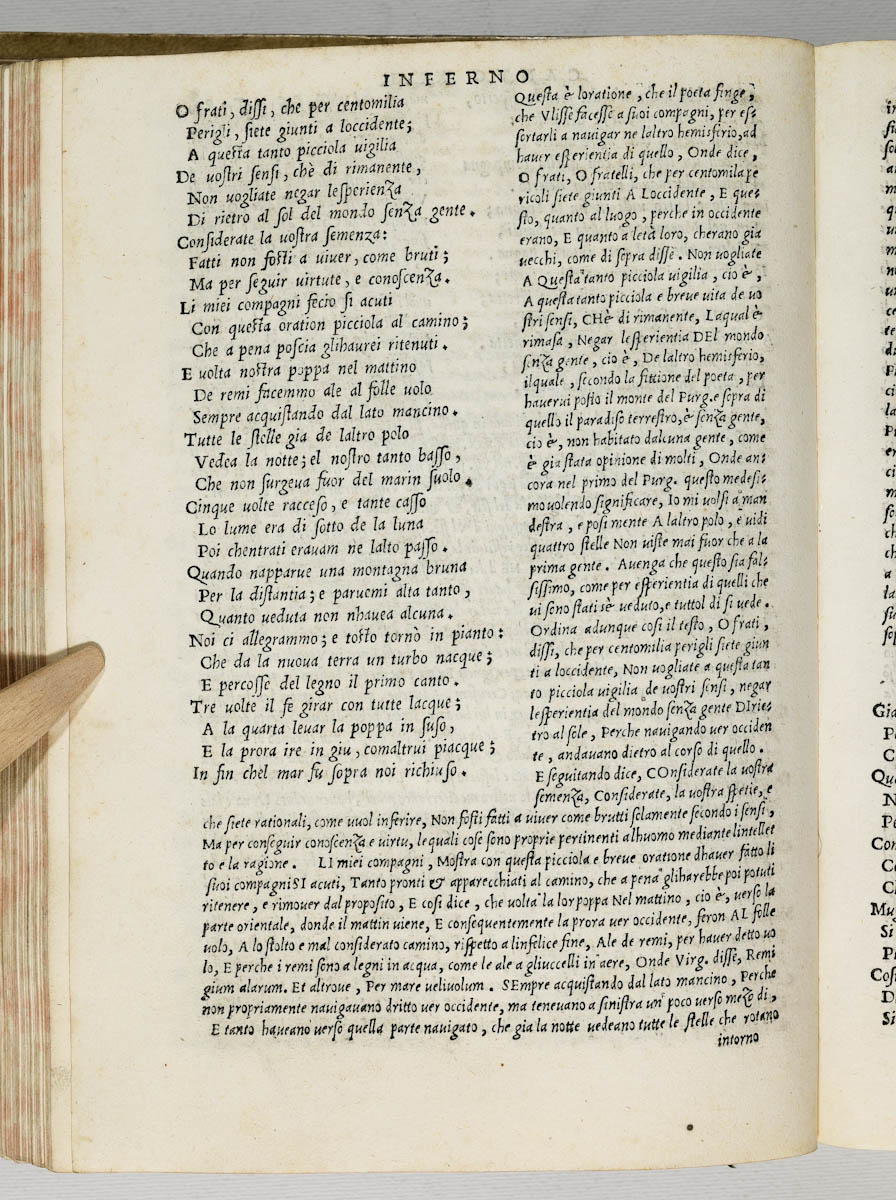 INFERNO
O frati, dissi, che per centomilia
Perigli, siete giunti a loccidente;
A questa tanto picciola uigilia
De uostri sensi, chè di rimanente,
Non uogliate negar lesperienza
Di rietro al sol del mondo senza gente.
Considerate la uostra semenza:
Fatti non fosti a uiuer, come bruti;
Ma per seguir uirtute, e conoscenza.
Li miei compagni fecio si acuti
Con questa oration picciola al camino;
Che a pena poscia glihaurei ritenuti.
E uolta nostra poppa nel mattino
De remi facemmo ale al folle uolo
Sempre acquistando dal lato mancino.
Tutte le stelle gia de laltro polo
Vedea la notte; el nostro tanto basso,
Che non surgeua fuor del marin suolo.
Cinque uolte racceso, e tante casso
Lo lume era di sotto de la luna
Poi chentrati erauam ne lalto passo.
Quando napparue una montagna bruna
Per la distantia; e paruemi alta tanto,
Quanto ueduta non nhauea alcuna.
Noi ci allegrammo; e tosto tornò in pianto:
Che da la nuoua terra un turbo nacque;
E percosse del legno il primo canto.
Tre uolte il fe girar con tutte lacque;
A la quarta leuar la poppa in suso,
E la prora ire in giu, comaltrui piacque;
In fin chel mar fu sopra noi richiuso.
Questa è loratione, che il poeta finge,
che Vlisse facesse a suoi compagni, per es-
sortarli a nauigar ne laltro hemisferio, ad
hauer esperientia di quello, Onde dice,
O frati, O fratelli, che per centomila pe
ricoli siete giunti A Loccidente, E que-
sto, quanto al luogo, perche in occidente
erano, E quanto a letà loro, cherano gia
uecchi, come di sopra disse. Non uogliate
A Questa tanto picciola uigilia, cio è,
A questa tanto picciola e breue uita de uo
stri sensi, CHè di rimanente, Laqual è
rimasa, Negar lesperientia DEl mondo
senza gente, cio è, De laltro hemisferio,
ilquale, secondo la fittione del poeta, per
hauerui posto il monte del Purg. e sopra di
quello il paradiso terrestro, è senza gente,
cio è, non habitato dalcuna gente, come
è gia stata opinione di molti, Onde an-
cora nel primo del Purg. questo medesi-
mo uolendo significare, Io mi uolsi a man
destra, e posi mente A laltro polo, e uidi
quattro stelle Non uiste mai fuor che a la
prima gente. Auenga che questo sia fal-
sissimo, come per esperientia di quelli che
ui sono stati è ueduto, e tuttol di si uede.
Ordina adunque cosi il testo, O frati,
dissi, che per centomilia perigli siete giun
ti a loccidente, Non uogliate a questa tan
to picciola uigilia de uostri sensi, negar
lesperientia del mondo senza gente DIrie-
tro al sole, Perche nauigando uer occiden
te, andauano dietro al corso di quello.
E seguitando dice, COnsiderate la uostra
semenza, Considerate, la uostra spetie, e
che siete rationali, come uuol inferire, Non fosti fatti a uiuer come brutti solamente secondo i sensi,
Ma per conseguir conoscenza e uirtu, le quali cose sono proprie pertinenti alhuomo mediante lintellet
to e la ragione. LI miei compagni, Mostra con questa picciola e breue oratione dhauer fatto li
suoi compagni SI acuti, Tanto pronti & apparecchiati al camino, che a pena gliharebbe poi potuti
ritenere, e rimouer dal proposito, E cosi dice, che uolta la lor poppa Nel mattino, cio è, uerso la
parte orientale, donde il mattin uiene, E consequentemente la prora uer occidente, feron AL folle
uolo, A lo stolto e mal considerato camino, rispetto a linfelice fine, Ale de remi, per hauer detto uo
lo, E perche i remi sono a legni in acqua, come le ale a gliuccelli in aere, Onde Virg. disse, Remi
gium alarum. Et altroue, Per mare ueliuolum. SEmpre acquistando dal lato mancino, Perche
non propriamente nauigauano dritto uer occidente, ma teneuano a sinistra un poco uerso mezo di,
E tanto haueano uerso quella parte nauigato, che gia la notte uedeano tutte le stelle che rotano
intorno